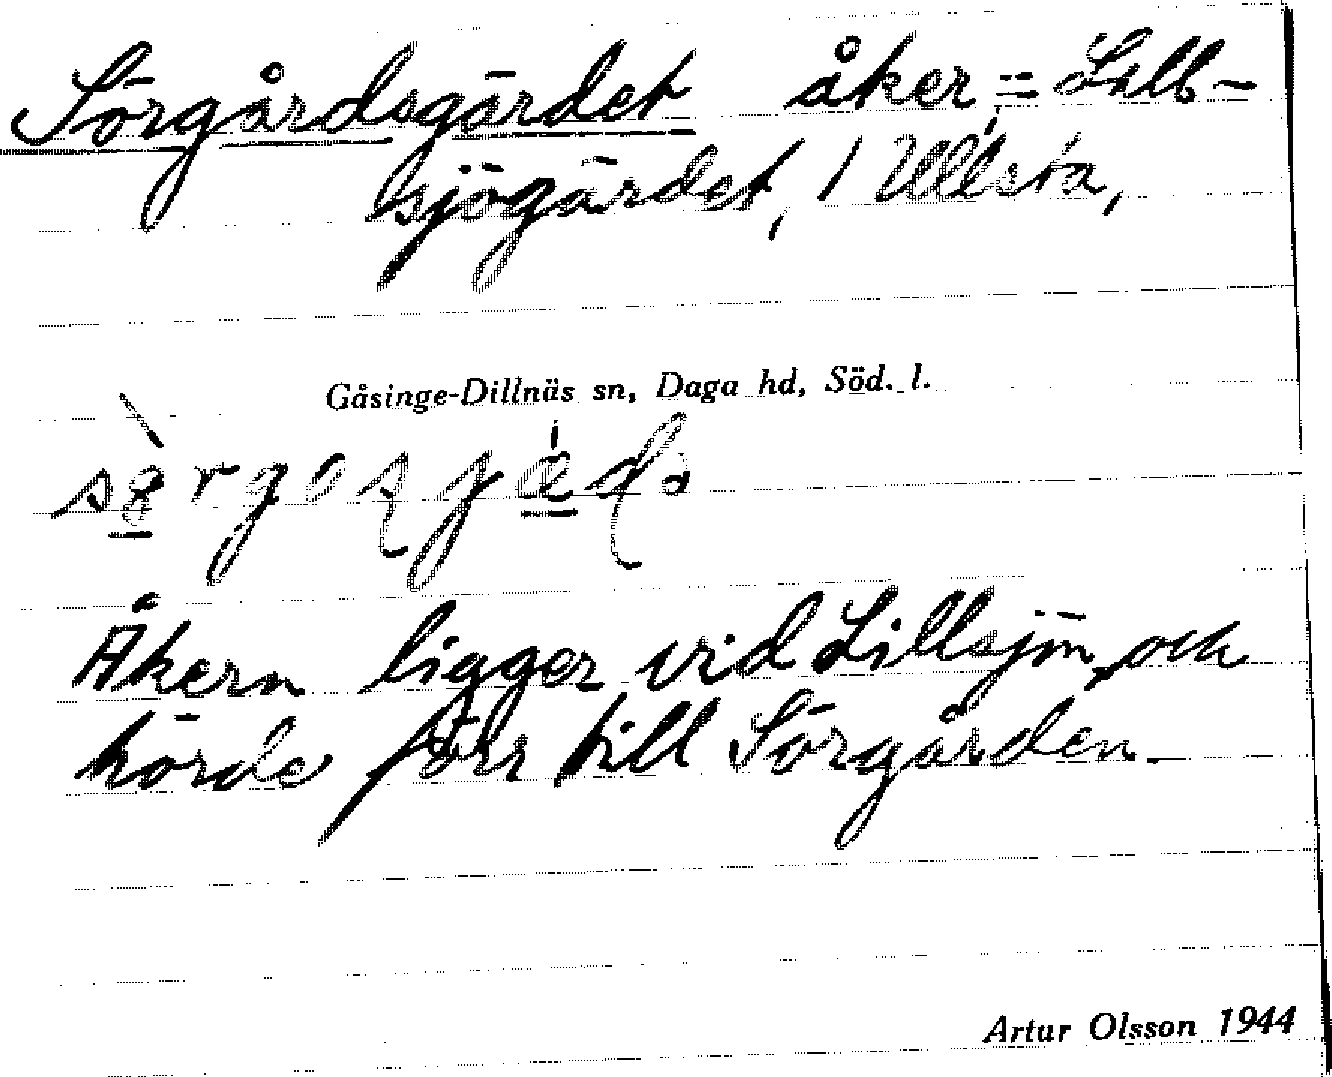 Sörgårdsgärdet åker = Lill-
sjögärdet, 1 Ullsta,
Gåsinge-Dillnäs sn, Daga hd, Söd. l.
Åkern ligger vid Lillsjön, och
hörde förr till Sörgården.
Artur Olsson 1944